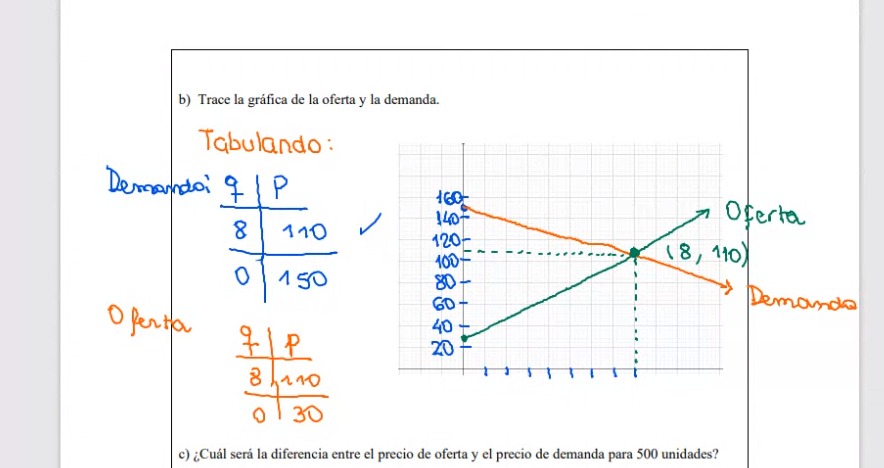 b) Trace la gráfica de la oferta y la demanda.
Tabulando:
Demanda: q | P
8 | 110
0 | 150
Oferta
q | P
8 | 110
0 | 30
160
140
120
100
80
60
40
20
Oferta
(8, 110)
Demanda
c) ¿Cuál será la diferencia entre el precio de oferta y el precio de demanda para 500 unidades?